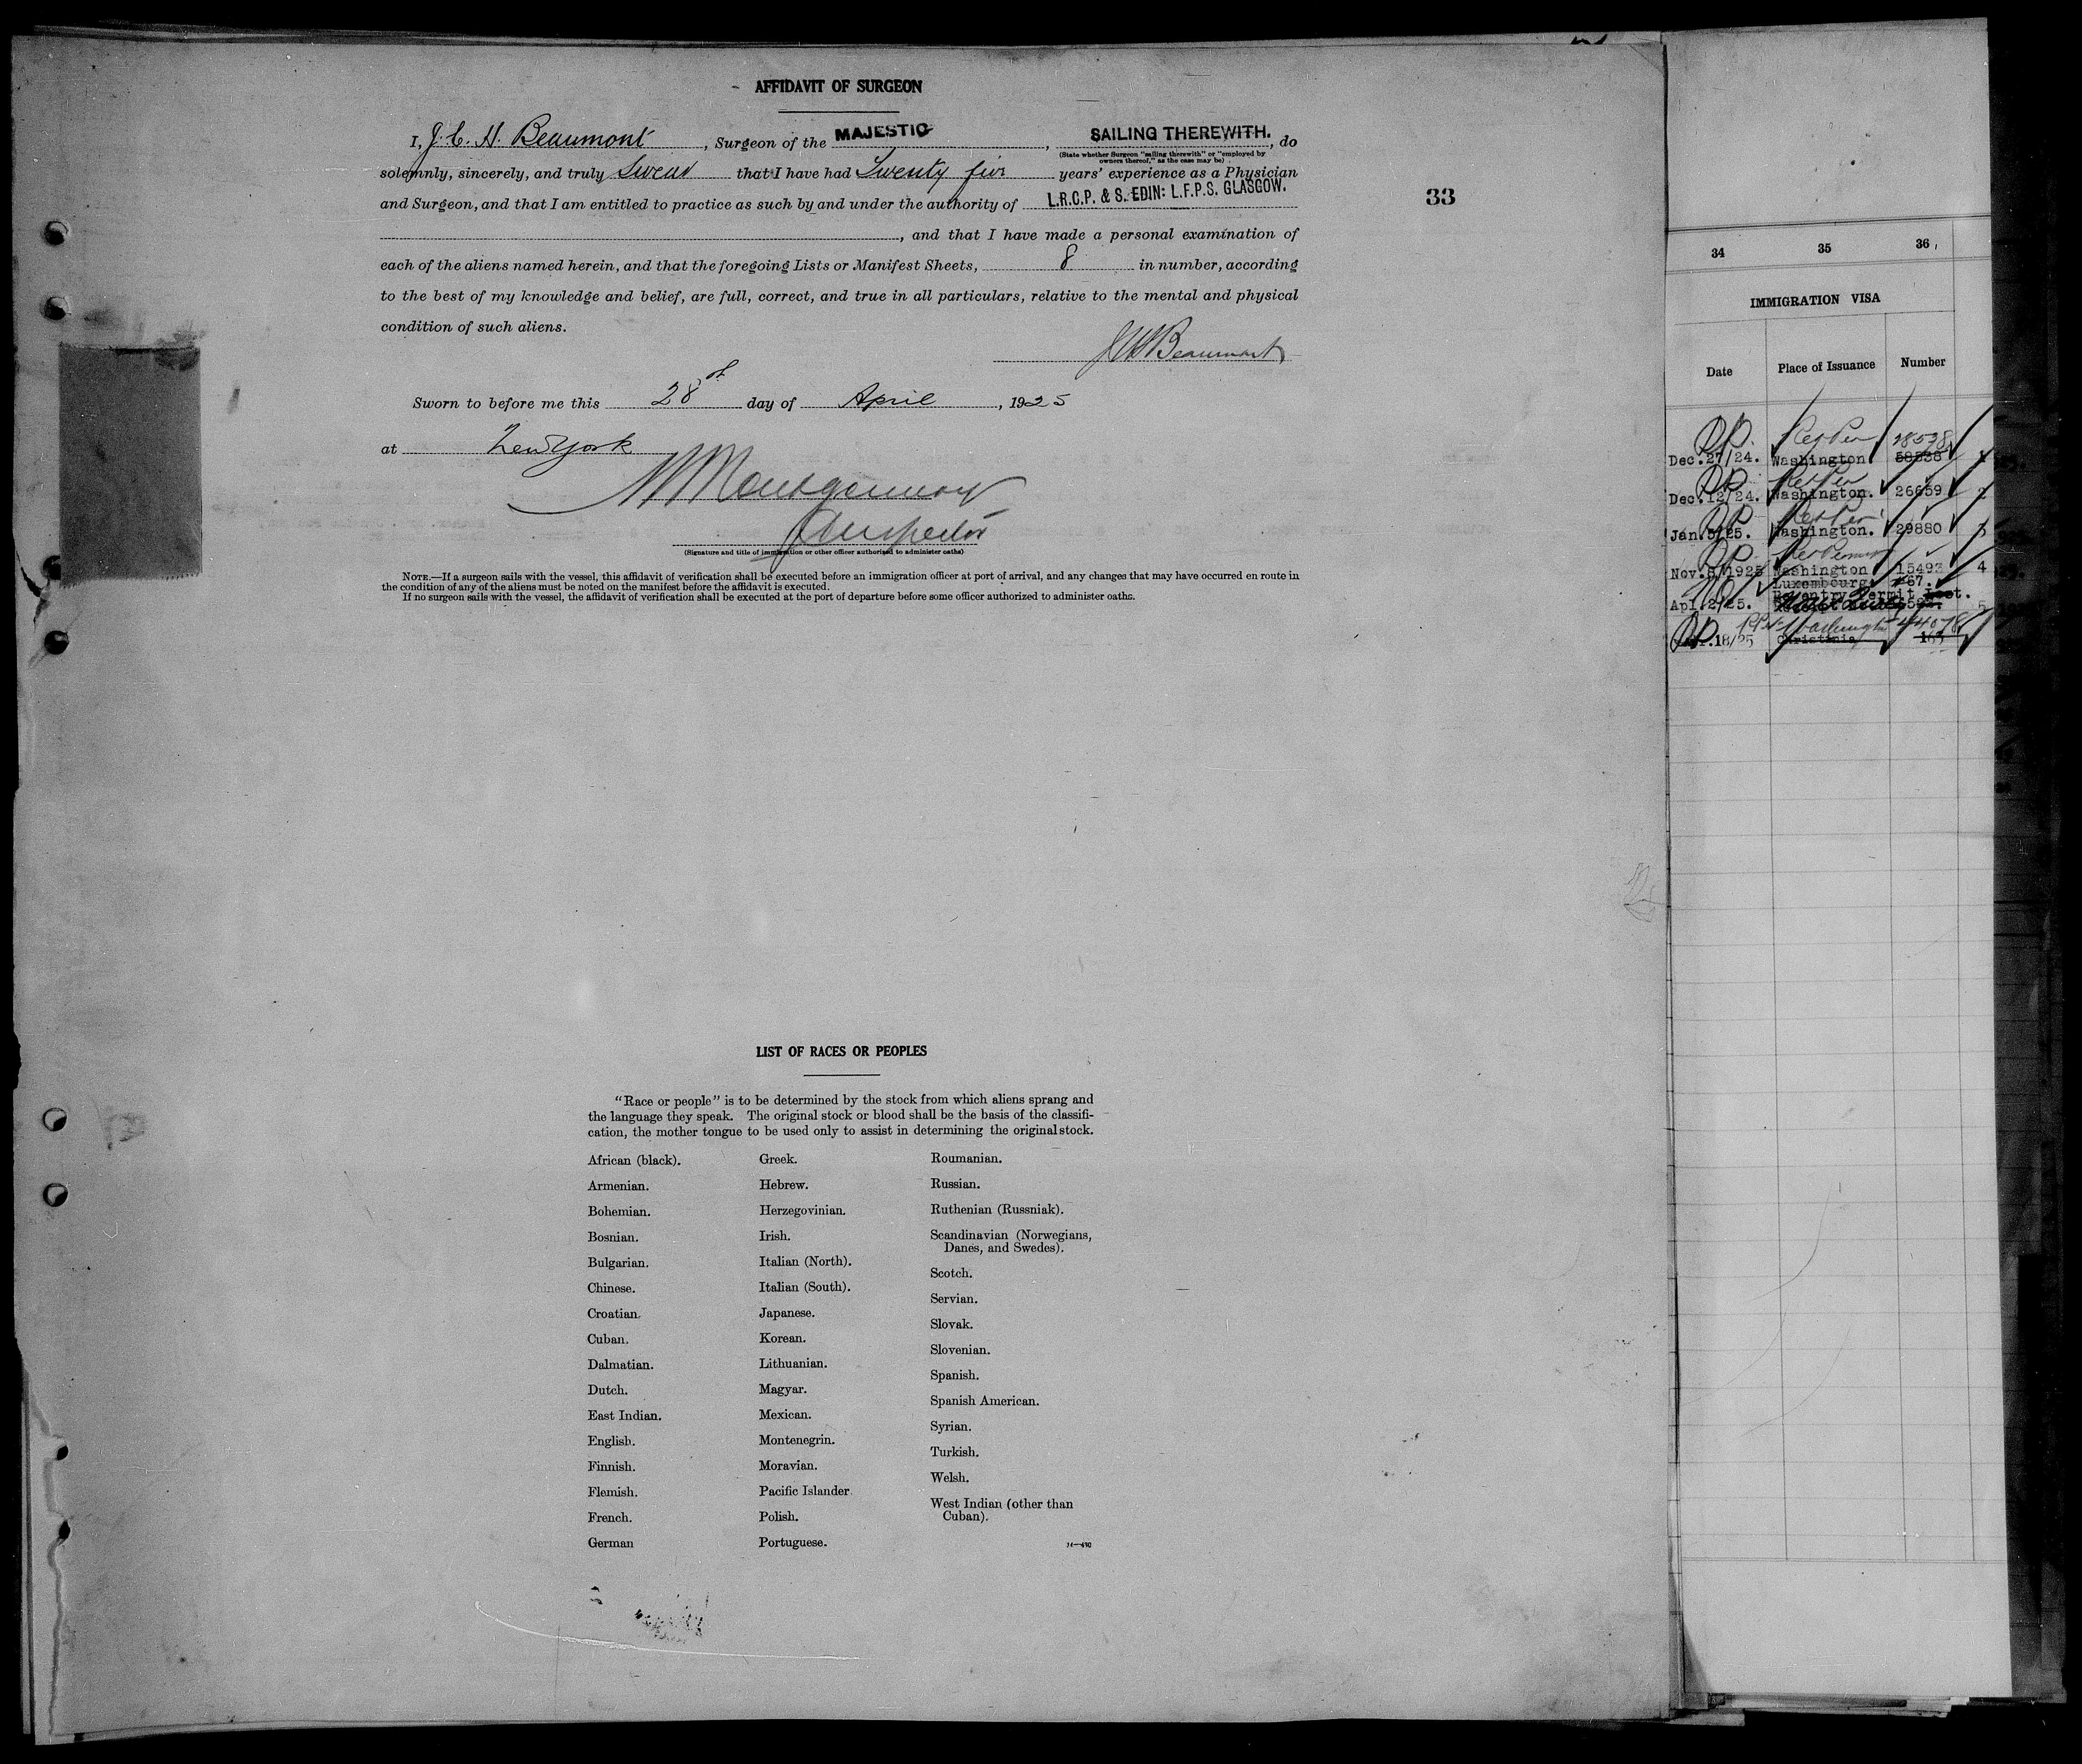 AFFIDAVIT OF SURGEON
I, J. C. H. Beaumont, Surgeon of the MAJESTIC, SAILING THEREWITH., do
(State whether Surgeon "sailing therewith" or "employed by
owners thereof," as the case may be)
solemnly, sincerely, and truly Swear that I have had Twenty five years' experience as a Physician
and Surgeon, and that I am entitled to practice as such by and under the authority of L.R.C.P. & S. EDIN: L.F.P.S. GLASGOW.
, and that I have made a personal examination of
each of the aliens named herein, and that the foregoing Lists or Manifest Sheets, 8 in number, according
to the best of my knowledge and belief, are full, correct, and true in all particulars, relative to the mental and physical
condition of such aliens.
JCH Beaumont
Sworn to before me this 28 day of April, 1925
at New York
Montgomery
Inspector
(Signature and title of immigration or other officer authorized to administer oaths)
NOTE.—If a surgeon sails with the vessel, this affidavit of verification shall be executed before an immigration officer at port of arrival, and any changes that may have occurred en route in
the condition of any of the aliens must be noted on the manifest before the affidavit is executed.
If no surgeon sails with the vessel, the affidavit of verification shall be executed at the port of departure before some officer authorized to administer oaths.
33
LIST OF RACES OR PEOPLES
"Race or people" is to be determined by the stock from which aliens sprang and
the language they speak. The original stock or blood shall be the basis of the classifi-
cation, the mother tongue to be used only to assist in determining the original stock.
African (black).
Armenian.
Bohemian.
Bosnian.
Bulgarian.
Chinese.
Croatian.
Cuban.
Dalmatian.
Dutch.
East Indian.
English.
Finnish.
Flemish.
French.
German
Greek.
Hebrew.
Herzegovinian.
Irish.
Italian (North).
Italian (South).
Japanese.
Korean.
Lithuanian.
Magyar.
Mexican.
Montenegrin.
Moravian.
Pacific Islander.
Polish.
Portuguese.
Roumanian.
Russian.
Ruthenian (Russniak).
Scandinavian (Norwegians,
Danes, and Swedes).
Scotch.
Servian.
Slovak.
Slovenian.
Spanish.
Spanish American.
Syrian.
Turkish.
Welsh.
West Indian (other than
Cuban).
34 35 36
IMMIGRATION VISA
Date Place of Issuance Number
28538
Dec.27/24. Washington 58538
Dec.12/24. Washington. 26659 2
Jan.5/25. Washington. 29880 3
Nov. 1925 Washington 15493 4
Luxembourg. 67.
Reentry Permit Lost.
Apl.2/25. 5
Washington 44078
18/25 Christinia 163